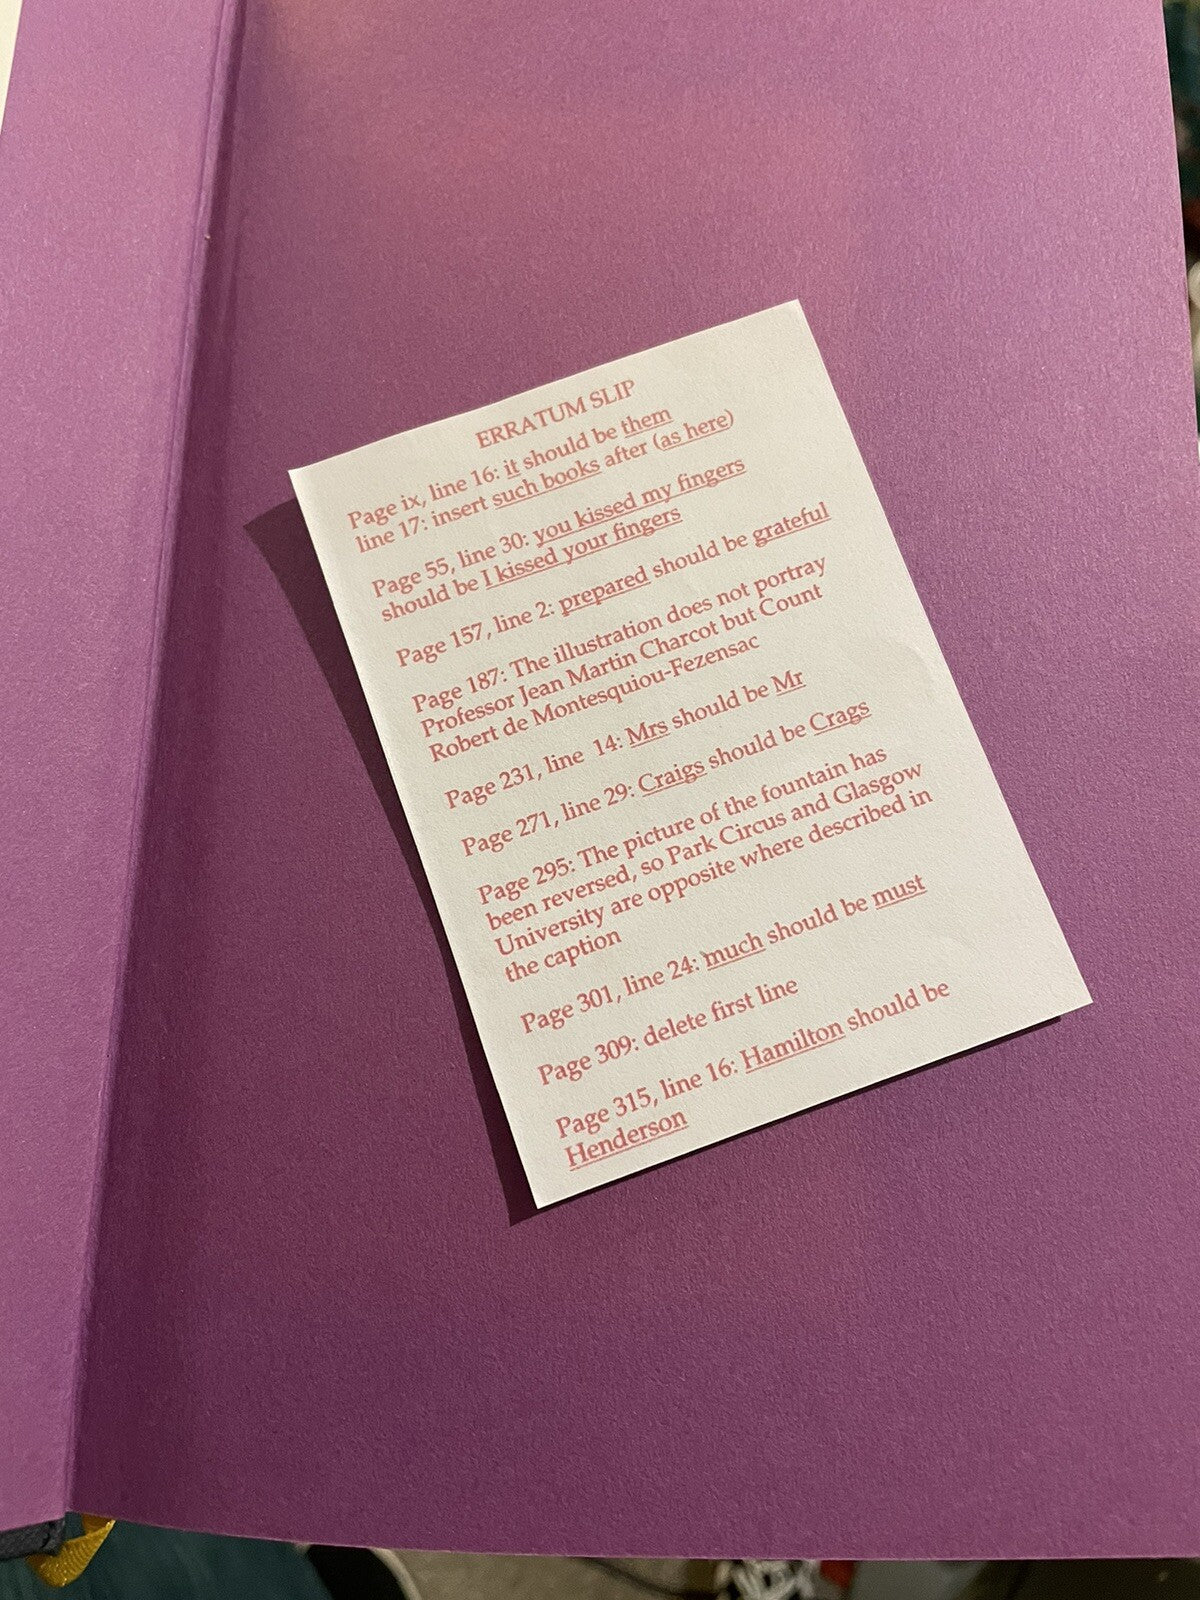 ERRATUM SLIP
Page ix, line 16: it should be them
line 17: insert such books after (as here)
Page 55, line 30: you kissed my fingers
should be I kissed your fingers
Page 157, line 2: prepared should be grateful
Page 187: The illustration does not portray
Professor Jean Martin Charcot but Count
Robert de Montesquiou-Fezensac
Page 231, line 14: Mrs should be Mr
Page 271, line 29: Craigs should be Crags
Page 295: The picture of the fountain has
been reversed, so Park Circus and Glasgow
University are opposite where described in
the caption
Page 301, line 24: much should be must
Page 309: delete first line
Page 315, line 16: Hamilton should be
Henderson